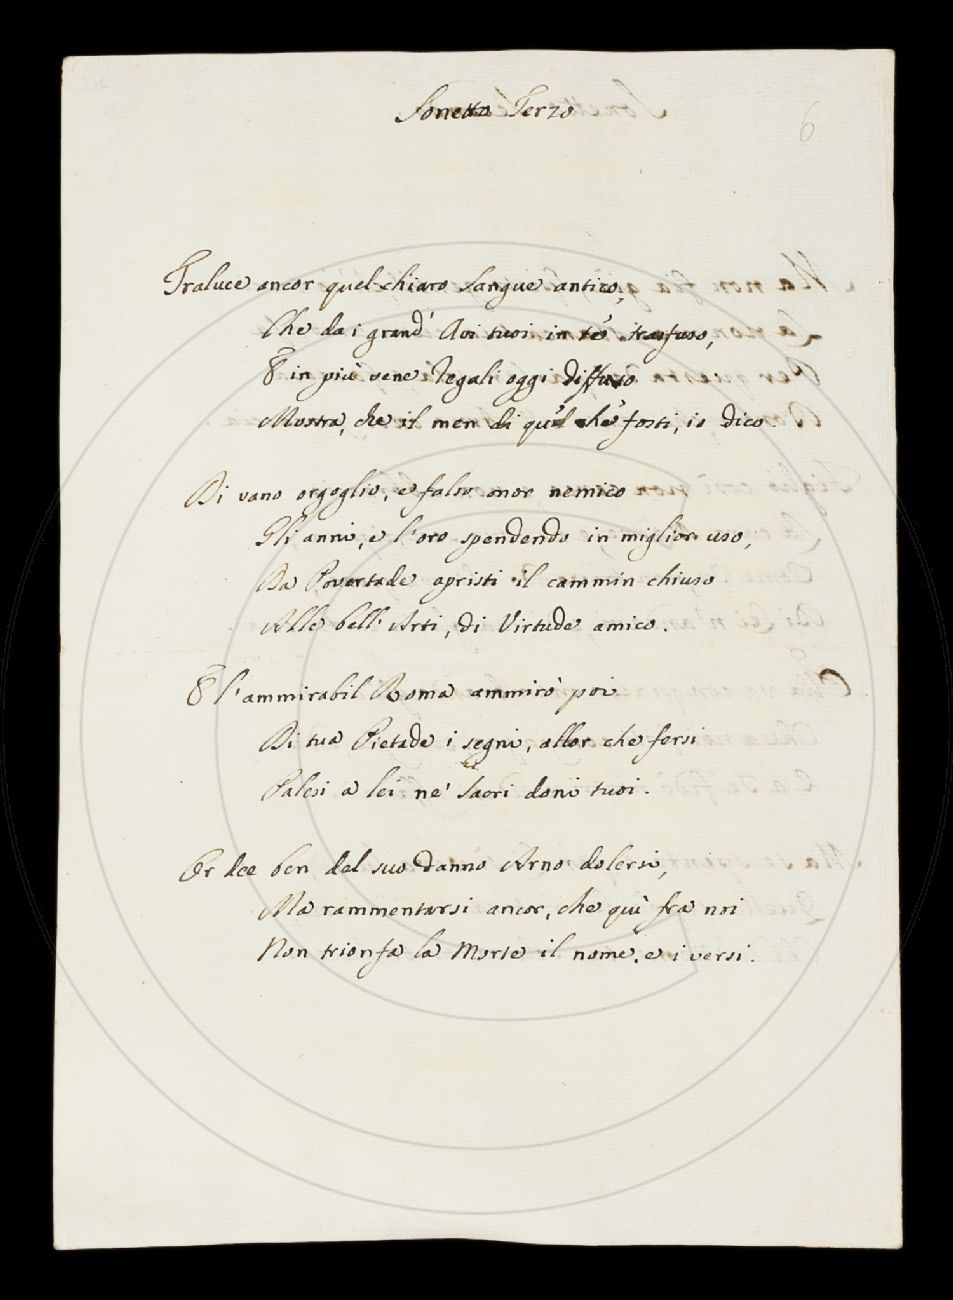 Sonetto Terzo
6
Traluce ancor quel chiaro Sangue antico,
Che da i grand' Avi tuoi in té trasfuso,
E in più vene Regali oggi diffuso
Mostra, che il men di qu'el ché fosti, io dico.
Di vano orgoglio, e falso onor nemico
Gli anni, e l'oro spendendo in miglior uso,
Da Povertade apristi il cammin chiuso
Alle bell' Arti, di Virtude amico.
E l'ammirabil Roma ammirò poi
Di tua Pietade i segni, allor che fersi
Palesi a lei ne' Sacri doni tuoi.
Or dee ben del suo danno Arno dolersi,
Ma rammentarsi ancor, che quì fra noi
Non trionfa la Morte il nome, e i versi.